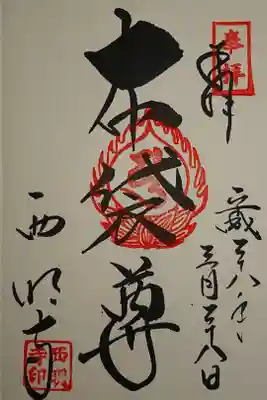 奉拝
奉拝
平成二十八年
三月二十八日
布袋尊
西明寺
西明寺印